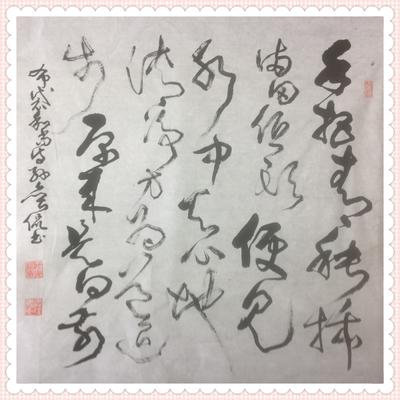 手把青秧插
满田低头便见
水中天心地
清净方为道退
步原来是向前
布袋和尚诗 书